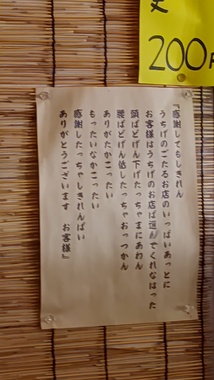 『感謝してもしきれん
うちげのごたるお店のいっぱいあっとに
お客様はうちげのお店ば選んでくれなはった
頭ばどげん下げたっちゃまにあわん
腰ばどげん低したっちゃおっつかん
ありがたかこったい
もったいなかこったい
感謝したっちゃしきれんばい
ありがとうございます お客様』
200円